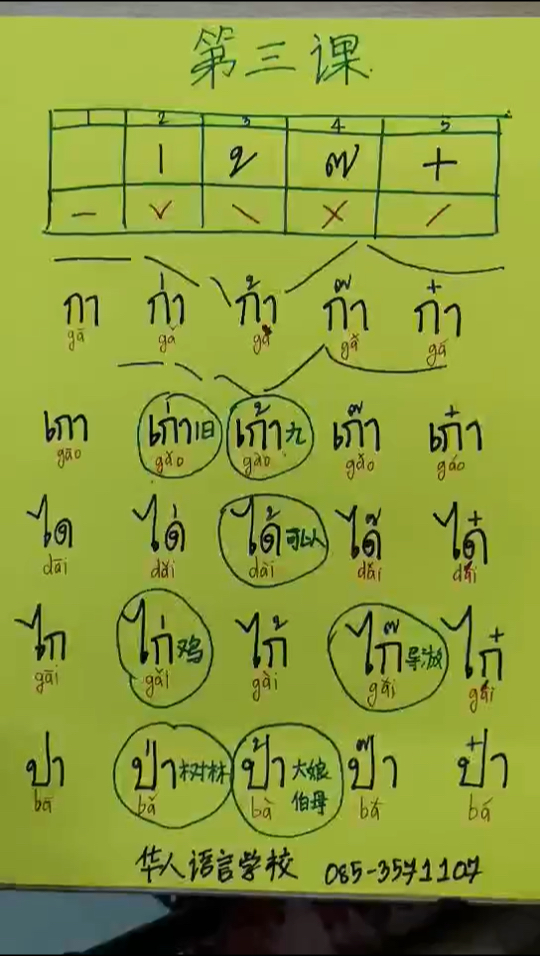 第三课
1 2 3 4 5
่ ้ ๊ ๋
— ∨ \ × /
กา ก่า ก้า ก๊า ก๋า
gā gǎ gà gá
เกา เก่า旧 เก้า九 เก๊า เก๋า
gāo gǎo gào gǎo gáo
ได ได่ ได้可以 ได๊ ได๋
dāi dǎi dài dǎi
ไก ไก่鸡 ไก้ ไก๊导游 ไก๋
gāi gǎi gài
ปา ป่า树林 ป้า大娘 ป๊า ป๋า
伯母
bā bǎ bà bá
华人语言学校 085-3571107